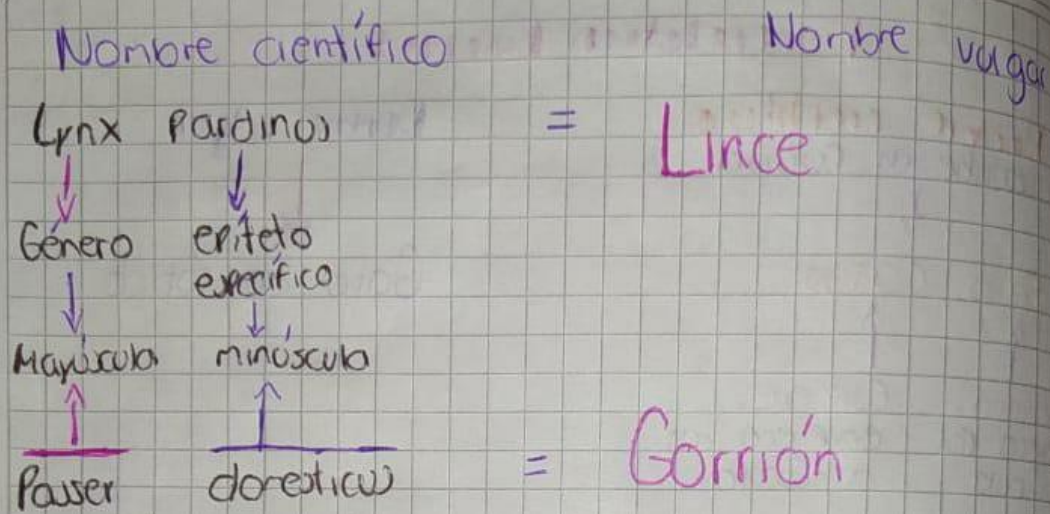 Nombre científico Nombre vuga
Lynx Pardinus = Lince
Género epíteto
específico
Mayúscula minúscula
Passer domesticus = Gorrión